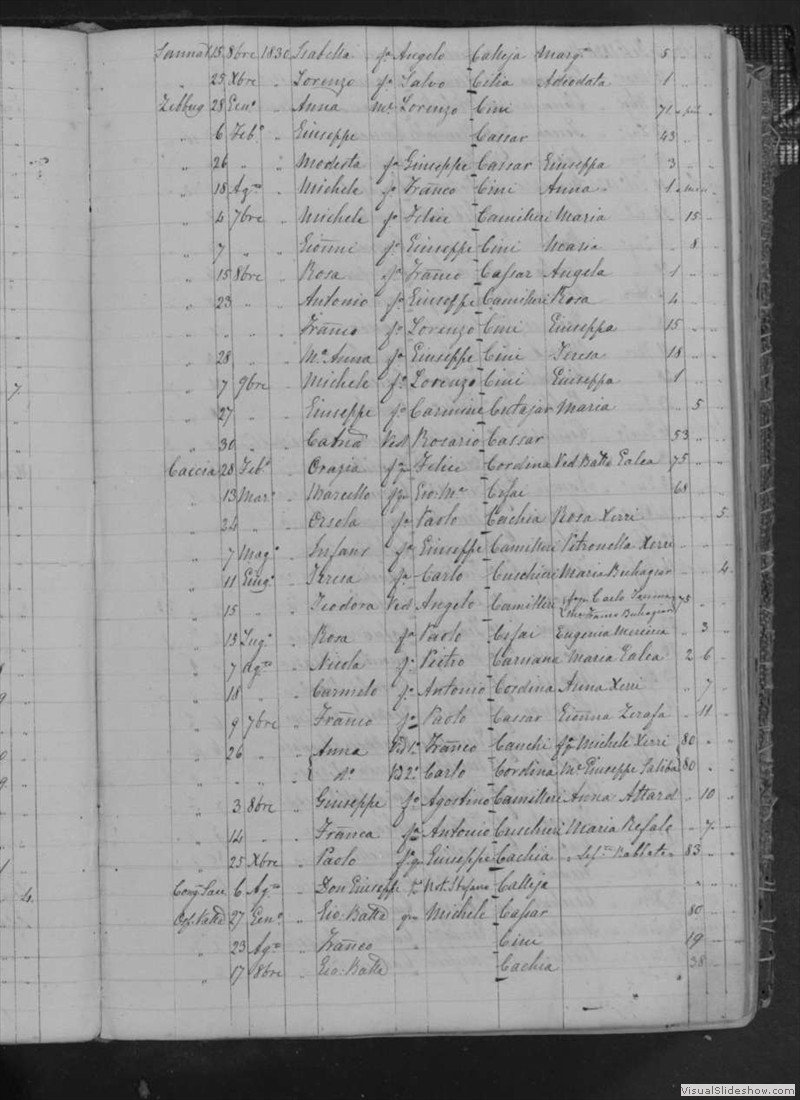 Sannat 15 8bre 1830 Isabella fa Angelo Calleja Marga 5 " "
" 25 Xbre " Lorenzo fo Salvo Cilia Adeodata 1 " "
Zebbug 28 Genn " Anna me Lorenzo Cini 71
" 6 Feb " Giuseppe Cassar 43 " "
" 26 " " Modesta fa Giuseppe Cassar Giuseppa 3 " "
" 18 Ago " Michele fo Franco Cini Anna 1
" 4 7bre " Michele fo Felice Camilleri Maria " 15
" 7 " " Gionni fo Giuseppe Cini Maria " 8
" 15 8bre " Rosa fa Franco Cassar Angela 1 " "
" 23 " " Antonio fo Giuseppe Camilleri Rosa 4 " "
" " " " Franco fo Lorenzo Cini Giuseppa 15 " "
" 28 " " Ma Anna fa Giuseppe Cini Teresa 18 " "
" 7 9bre " Michele fo Lorenzo Cini Giuseppa 1 " "
" 27 " " Giuseppe fo Carmine Cutajar Maria " 5
" 30 " " Ved Rosario Cassar 53 " "
Caccia 28 Feb " Orazia fq Felice Cordina Ved Batta Galea 75 " "
" 13 Mar " Marcello fq Gio: Ma Cefai 68 " "
" 24 " " Orsola fa Paolo Cachia Rosa Xerri " " 5
" 7 Mago " Infans fo Giuseppe Camilleri Petronella Xerri
" 11 Giugo " Teresa fa Carlo Cuschieri Maria Buhagiar " " 4
" 15 " " Teodora Ved Angelo Camilleri Carlo Franco Buhagiar 78
" 13 Lug " Rosa fa Paolo Cefai Eugenia " 3 "
" 7 Ago " Nicola fo Pietro Caruana Maria Galea 2 6
" 18 " " Carmelo fo Antonio Cordina Anna Xerri " 7
" 9 7bre " Franco fo Paolo Cassar Gionna Zerafa " 11
" 26 " " Anna Vd 1o Franco fq Michele Xerri 80
" " " " do Vd 2o Carlo Cordina Me Giuseppe Saliba 80
" 3 8bre " Giuseppe fo Agostino Camilleri Anna Attard " 10 "
" 14 " " Franca fa Antonio Cuschieri Maria Refalo " 7 "
" 25 Xbre " Paolo fq Giuseppe Cachia " 83
6 Ago " Don Giuseppe Not. Stefano Calleja
27 Genn " Gio: Batta qm Michele Cassar 80
" 23 Ago " Franco " Cini 19
" 17 8bre " Gio: Batta Cachia 38
7
4
VisualSlideshow.com